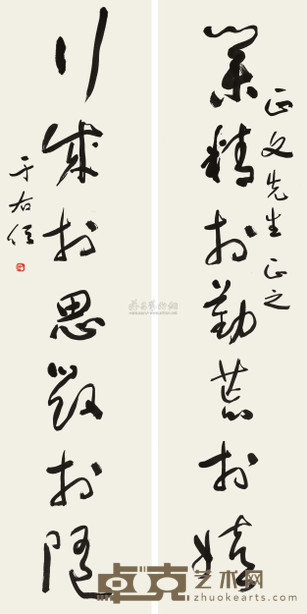 業精於勤荒於嬉
正文先生正之
行成於思毀於隨
于右任
卓克艺术网
www.zhuokearts.com